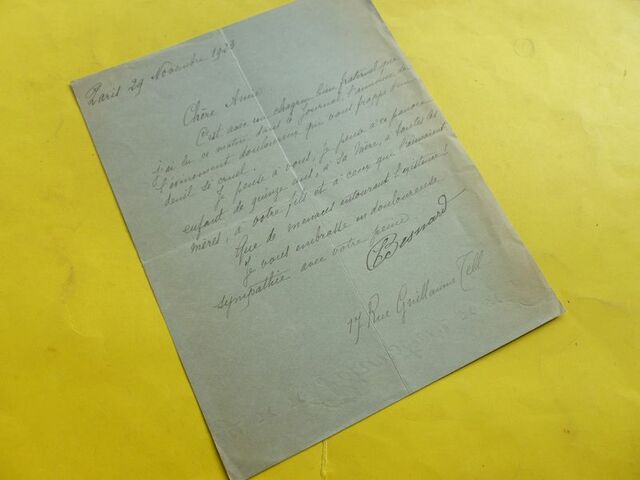 Paris 29 Novembre 1923
Chère Amie
C'est avec un chagrin bien fraternel que
j'ai lu ce matin dans le journal l'annonce de
l'évènement douloureux qui vous frappe d'un
deuil si cruel.
Je pense à vous, je pense à ce pauvre
enfant de quinze ans, à sa mère, à toutes les
mères, à votre fils et à ceux qui l'aimaient
Que de menaces entourant l'existence!
Je vous embrasse en douloureuse
sympathie avec votre peine
Besnard
17 Rue Guillaume Tell